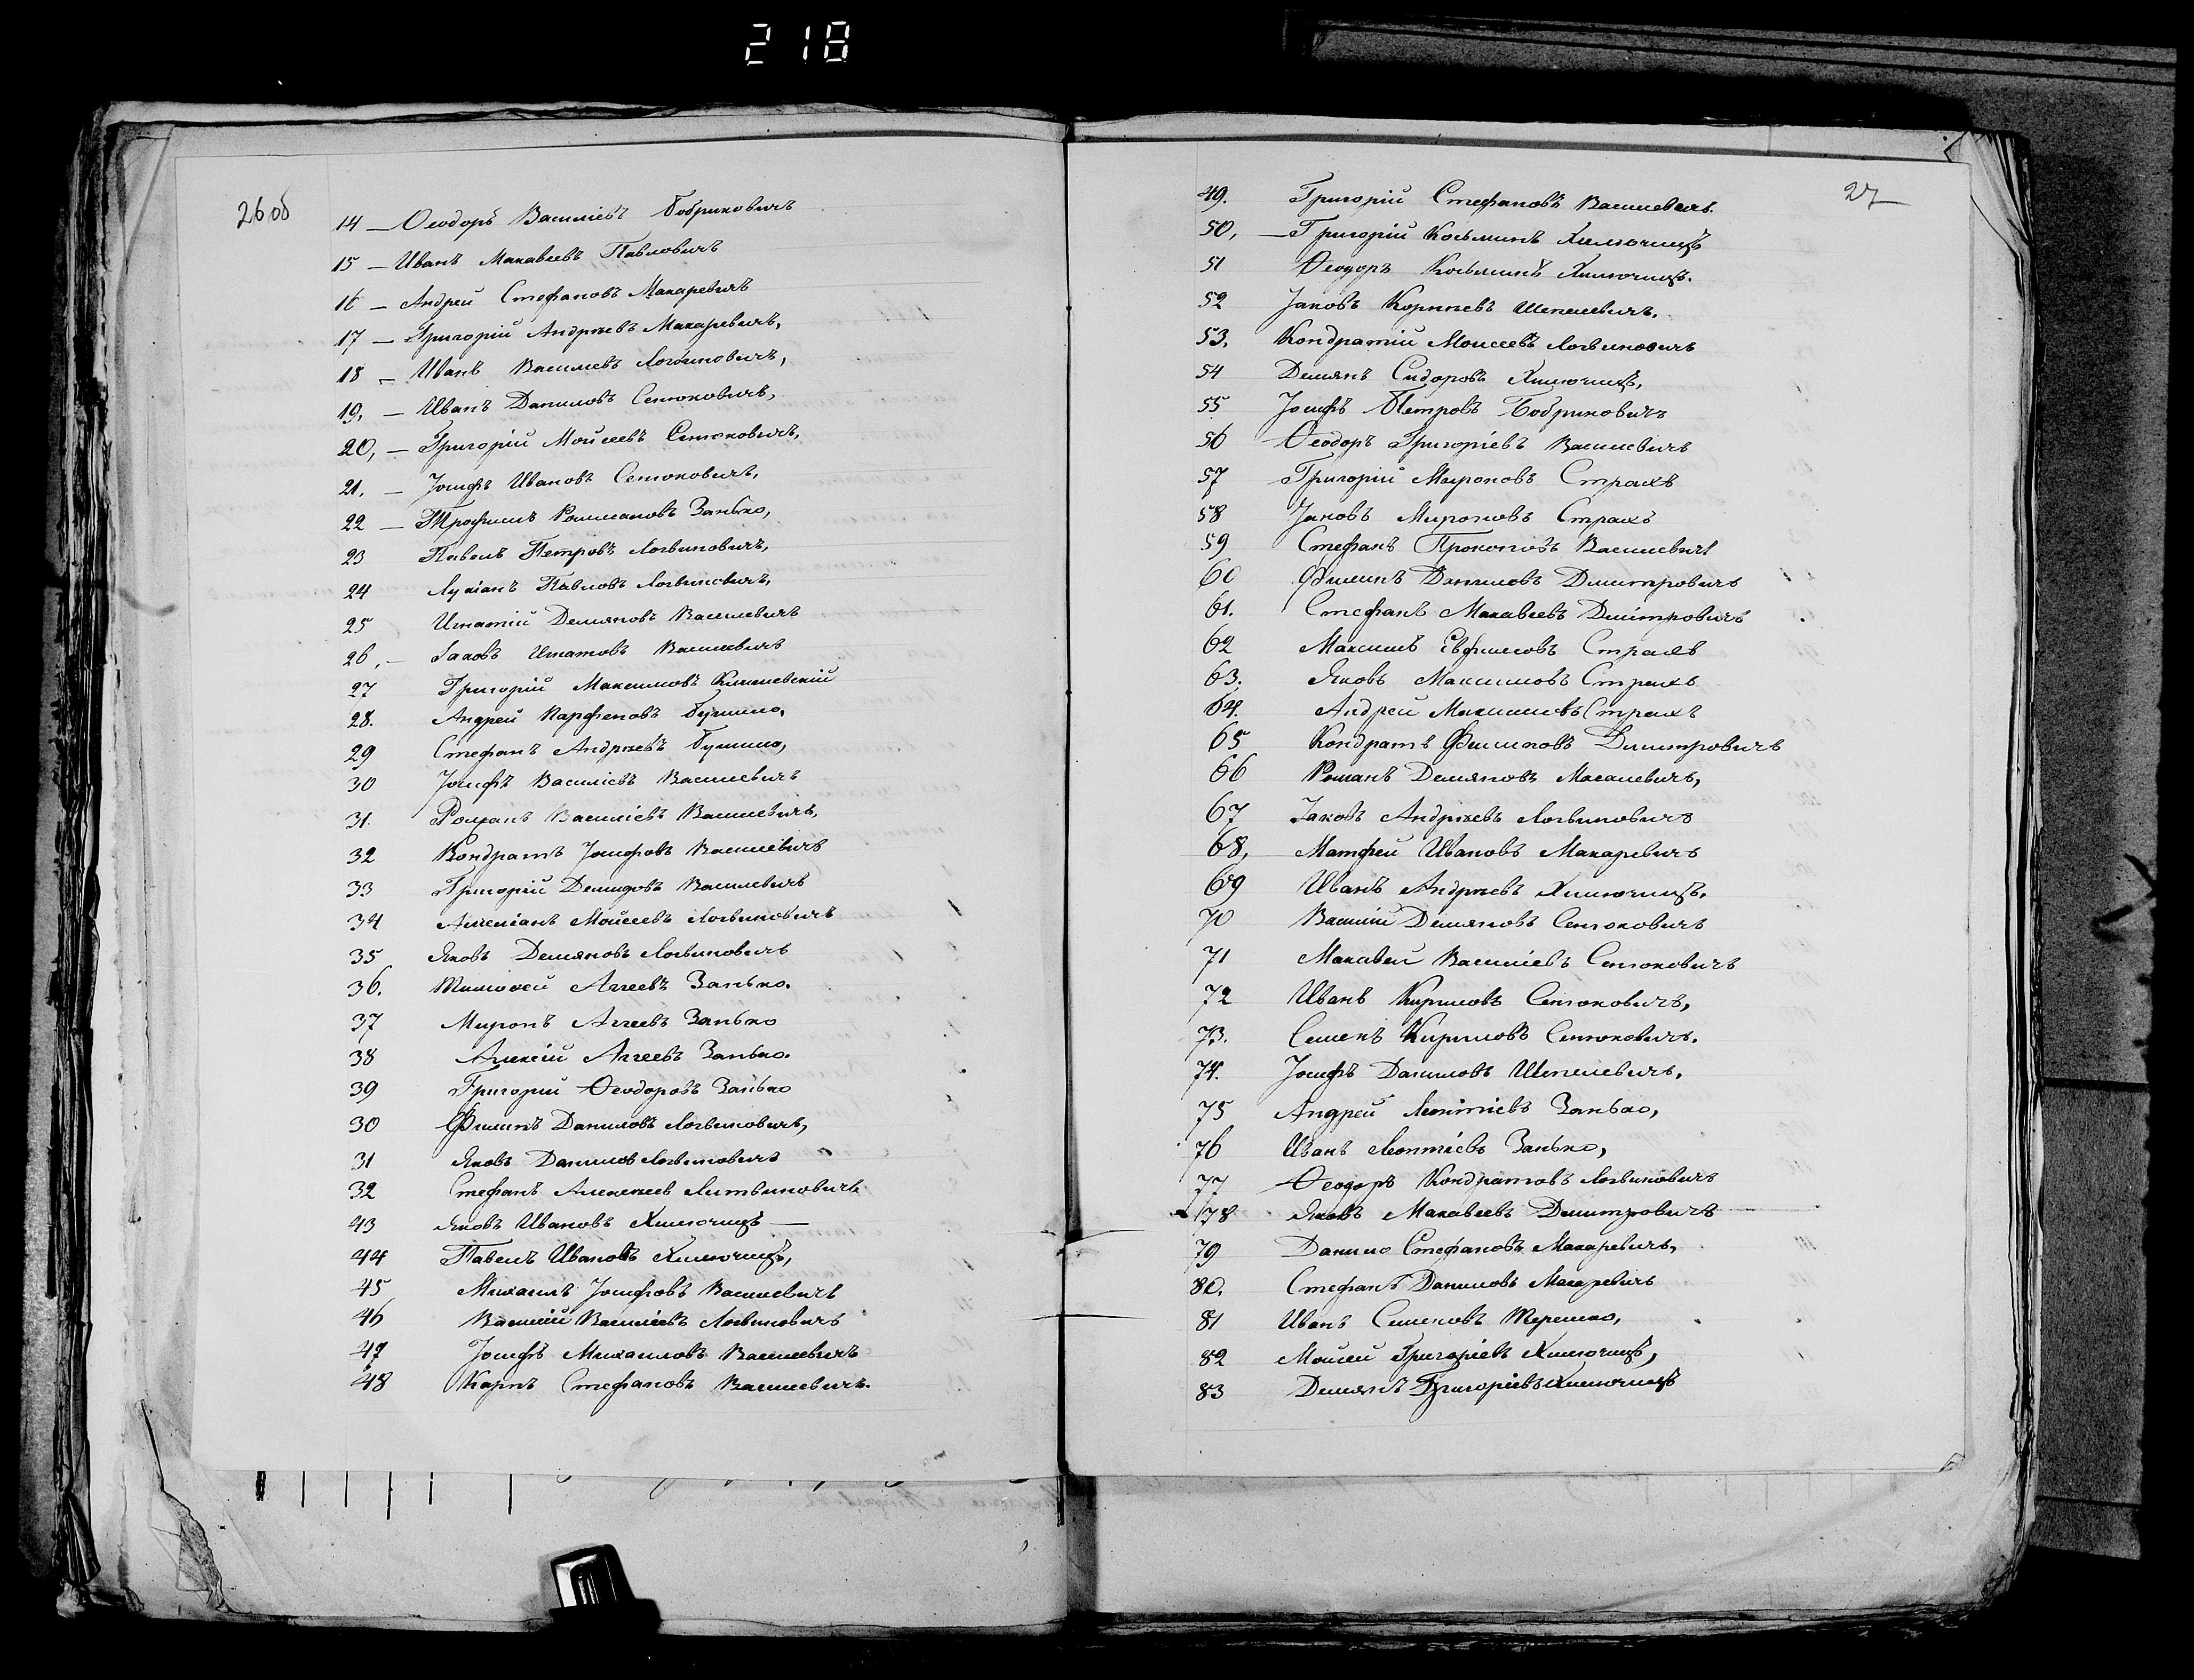 218
26 об
14 — Ѳеодоръ Василіевъ Бобриковичъ
15 — Иванъ Макавеевъ Павловичъ
16 — Андрей Стефановъ Макаревичъ
17 — Григорій Андреевъ Макаревичъ,
18 — Иванъ Василіевъ Логвиновичъ,
19, — Иванъ Даниловъ Сенюковичъ,
20, — Григорій Мойсеевъ Сенюковичъ,
21. — Іосифъ Ивановъ Сенюковичъ,
22 — Трофимъ Романовъ Занько,
23 Павелъ Петровъ Логвиновичъ,
24 Лукіанъ Павловъ Логвиновичъ,
25 Игнатій Демяновъ Василевичъ
26, — Іаковъ Игнатовъ Василевичъ
27 Григорій Максимовъ
28. Андрей Парфеновъ
29 Стефанъ Андреевъ
30 Іосифъ Василіевъ Василевичъ
31. Романъ Василіевъ Василевичъ,
32 Кондратъ Іосифовъ Василевичъ
33 Григорій Демидовъ Василевичъ
34 Мойсеевъ Логвиновичъ
35 Яковъ Демяновъ Логвиновичъ
36. Тимофей Аггеевъ Занько.
37 Миронъ Аггеевъ Занько
38 Алексій Аггеевъ Занько.
39 Григорій Ѳеодоровъ Занько
30 Филипъ Даниловъ Логвиновичъ,
31 Яковъ Данилов Логвиновичъ
32 Стефанъ Алексеев Литвиновичъ
43 Яковъ Ивановъ Хилючицъ —
44 Павелъ Ивановъ Хилючицъ,
45 Михаилъ Іосифовъ Василевичъ
46 Василій Василіевъ Логвиновичъ
47 Іосифъ Михаиловъ Василевичъ
48 Карпъ Стефановъ Василевичъ.
27
49. Григорій Стефановъ Василевичъ.
50, — Григорій Косьминъ Хилючицъ
51 Ѳеодоръ Косьминъ Хилючицъ.
52 Іаковъ Корнѣевъ Шепелевичъ.
53. Кондратій Моисеевъ Логвиновичъ
54 Демянъ Сидоровъ Хилючицъ,
55 Іосифъ Петровъ Бобриковичъ
56 Ѳеодоръ Григоріевъ Василевичъ
57 Григорій Мироновъ Страхъ
58 Іаковъ Мироновъ Страхъ
59 Стефанъ Прокоповъ Василевичъ
60 Филипъ Даниловъ Димитровичъ
61. Стефанъ Макавеевъ Димитровичъ
62 Максимъ Евфимовъ Страхъ
63. Яковъ Максимовъ Страхъ
64. Андрей Максимовъ Страхъ
65 Кондратъ Филиповъ Димитровичъ
66 Романъ Демяновъ
67 Іаковъ Андреевъ Логвиновичъ
68, Матфей Ивановъ Макаревичъ
69 Иванъ Андреевъ Хилючицъ.
70 Василій Демяновъ Сенюковичъ
71 Макавей Василіевъ Сенюковичъ
72 Иванъ Кириловъ Сенюковичъ,
73. Семенъ Кириловъ Сенюковичъ.
74. Іосифъ Даниловъ Шепелевичъ,
75 Андрей Леонтіевъ Занько,
76 Иванъ Леонтіевъ Занько,
77 Ѳеодоръ Кондратовъ Логвиновичъ
178 Яковъ Макавеевъ Димитровичъ
79 Данило Стефановъ Макаревичъ,
80. Стефанъ Даниловъ Макаревичъ
81 Иванъ Семеновъ Терешко,
82 Мойсей Григоріевъ Хилючицъ,
83 Демянъ Григоріевъ Хилючицъ